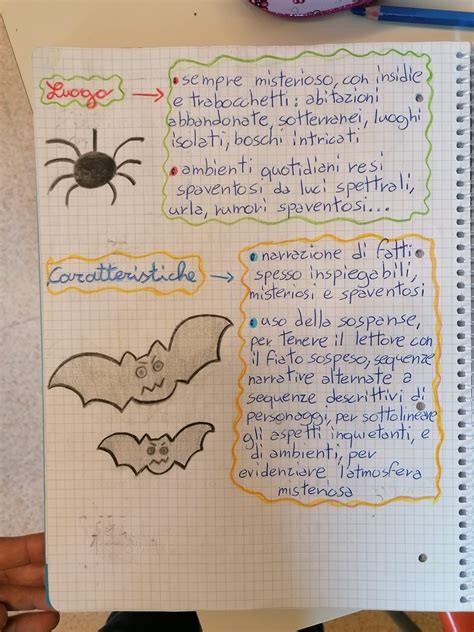 Luogo
• sempre misterioso, con insidie
e trabocchetti: abitazioni
abbandonate, sotterranei, luoghi
isolati, boschi intricati
• ambienti quotidiani resi
spaventosi da luci spettrali,
urla, rumori spaventosi...
Caratteristiche
• narrazione di fatti
spesso inspiegabili,
misteriosi e spaventosi
• uso della sospanse,
per tenere il lettore con
il fiato sospeso, sequenze
narrative alternate a
sequenze descrittivi di
personaggi, per sottolineare
gli aspetti inquietanti, e
di ambienti, per
evidenziare l'atmosfera
misteriosa